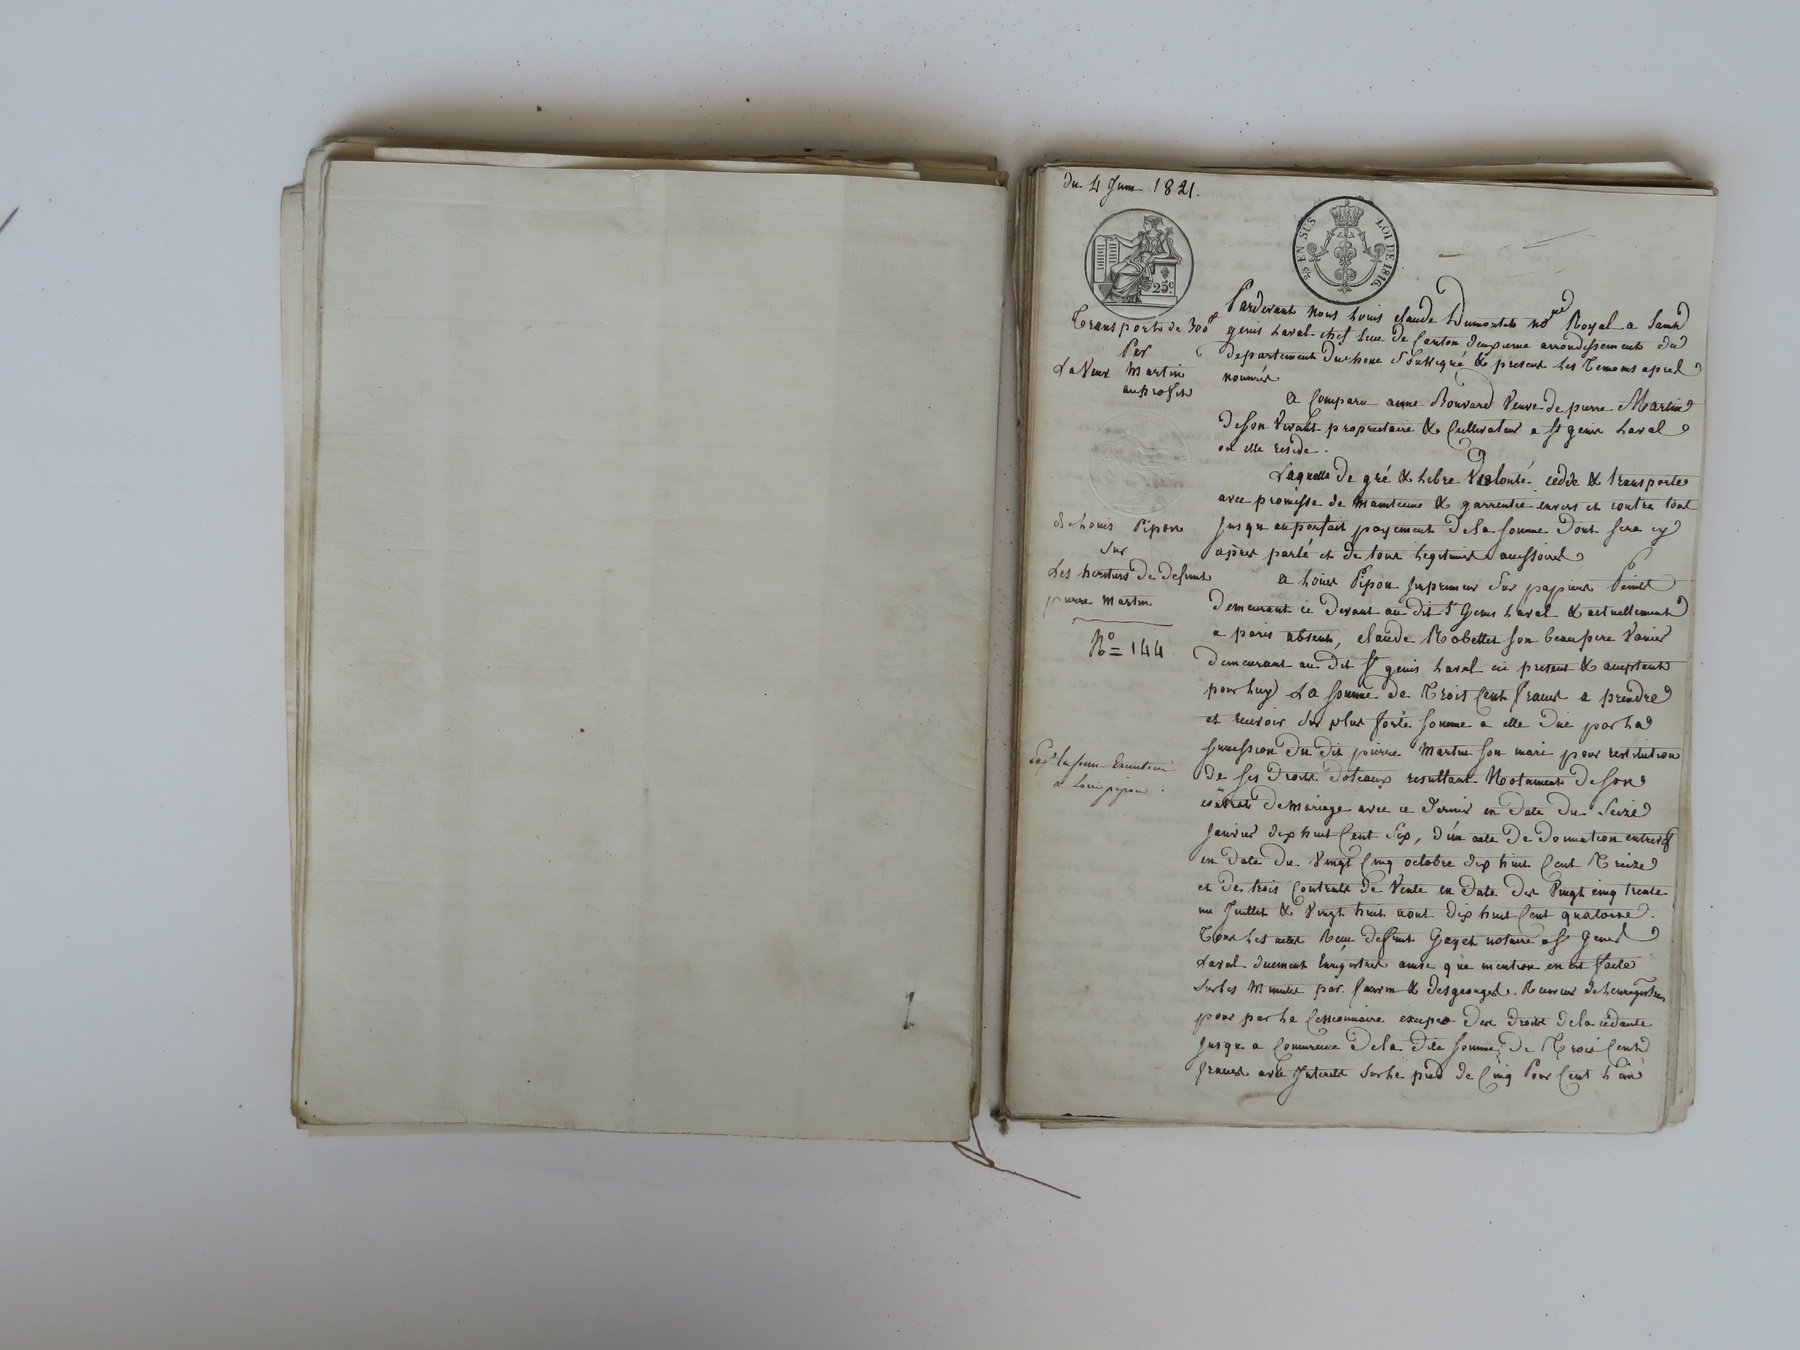 du 4 Juin 1821.
25c
EN SUS LOI DE 1816.
Transport de 300f
Par
La Veuve Martin
au profit
de Louis Pipon
Sur
Les heritiers de defunt
pierre Martin
No = 144
a Louis pipon.
Pardevant Nous Louis claude Dumortet Royal a Saint
genis Laval chef lieu de Canton deuxieme arrondissement du
departement du rhone Soussigné & presens les temoins apres
nommés
A Comparu anne Bouvard Veuve de pierre Martin
de son Vivant proprietaire & Cultivateur a St genis Laval
ou elle reside.
Laquelle de gré & Libre Volonté, cede & transporte
avec promesse de maintenue & garrentie envers et contre tous
Jusqu au parfait payement de la somme dont sera cy
après parlé et de tous legitimes accessoires
A Louis Pipon Imprimeur Sur papiers Peints
demeurant ci devant au dit St Genis Laval & actuellement
a paris absent, claude Robettet son beaupere
demeurant au dit St genis Laval ici present & acceptant
pour Luy La somme de Trois Cent francs a prendre
et recevoir sur plus forte somme a elle due par La
succession du dit pierre Martin son mari pour restitution
de ses droits doteaux resultant Notament de son
contrat de mariage avec ce dernier en date du Seize
Janvier dix huit Cent Six, d'un acte de donnation entrevif
en date du Vingt Cinq octobre dix huit Cent Treize
et de trois Contrats de Vente en date des Vingt cinq trente
un Juillet & Vingt huit aout dix huit Cent quatorze.
Tous Les actes Recu defunt Gayet notaire a St Genis
Laval duement Enregistrés ainsi que mention en est faite
sur les Minutes par & desgeorges. Receveur de Lenregistrem
pour par Le Cessionnaire exciper des droits de la cedante
Jusqu a Concurence de la dite Somme de Trois Cents
francs avec Interets sur le pied de Cinq Pour Cent L'an